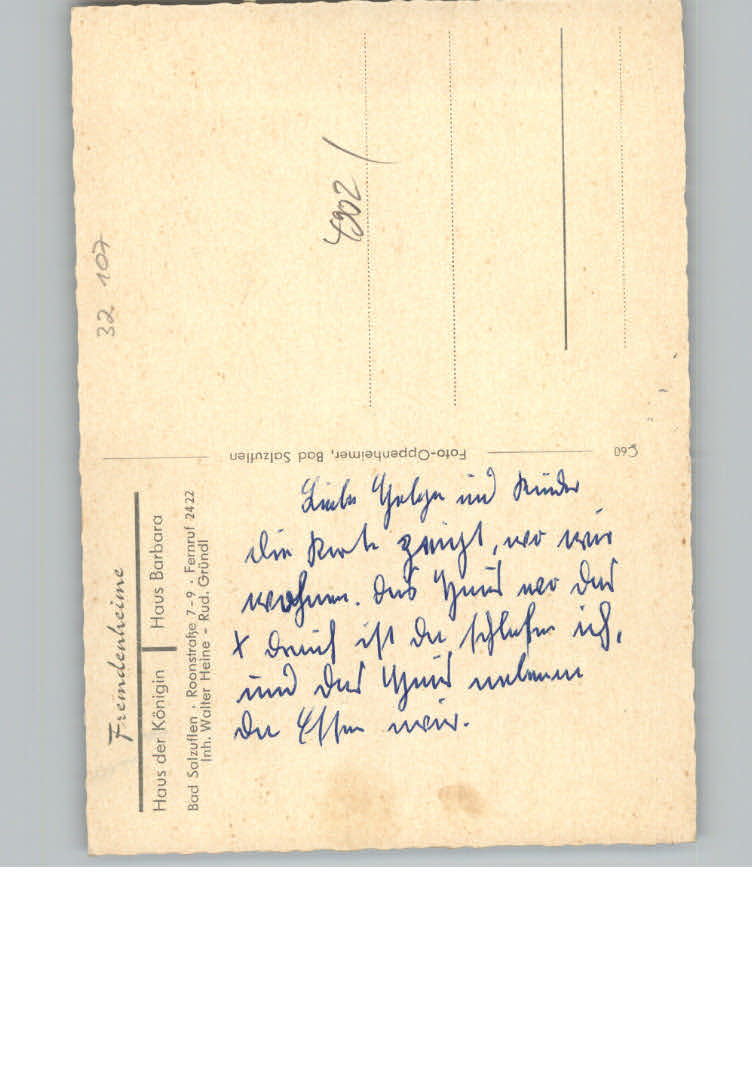 32 107
4902
Foto-Oppenheimer, Bad Salzuflen
C60
Fremdenheime
Haus der Königin | Haus Barbara
Bad Salzuflen · Roonstraße 7-9 · Fernruf 2422
Inh. Walter Heine - Rud. Gründl
Liebe und Kinder
die Karte zeigt, wo wir
wohnen. Das Haus wo das
X drauf ist da schlafen ich,
und das Haus nebenan
da Essen wir.